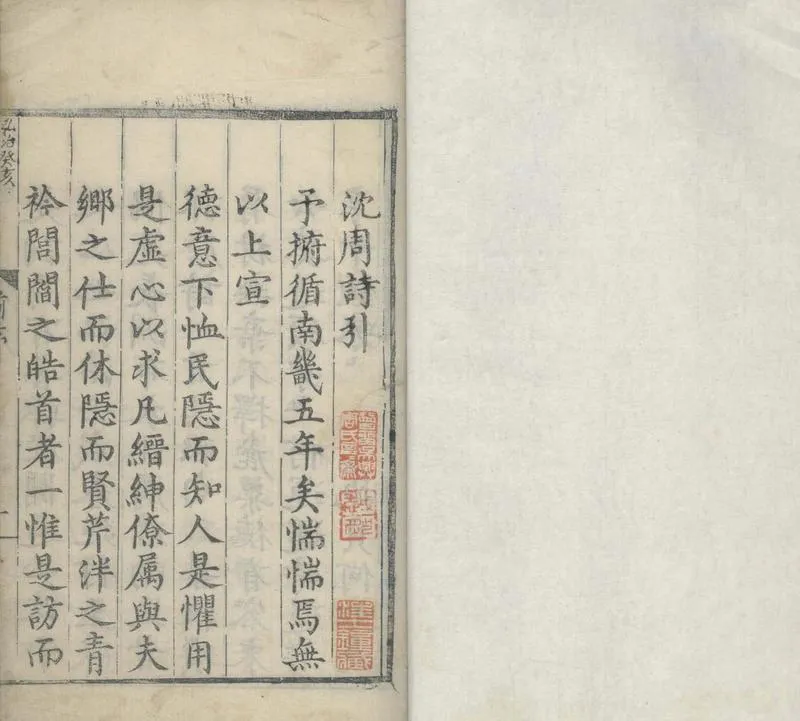 沈周詩引
予撫循南畿五年矣惴惴焉無
以上宣
德意下恤民隱而知人是懼用
是虛心以求凡縉紳僚属與夫
鄉之仕而休隱而賢芹泮之青
衿閭閻之皓首者一惟是訪而
弘治癸亥